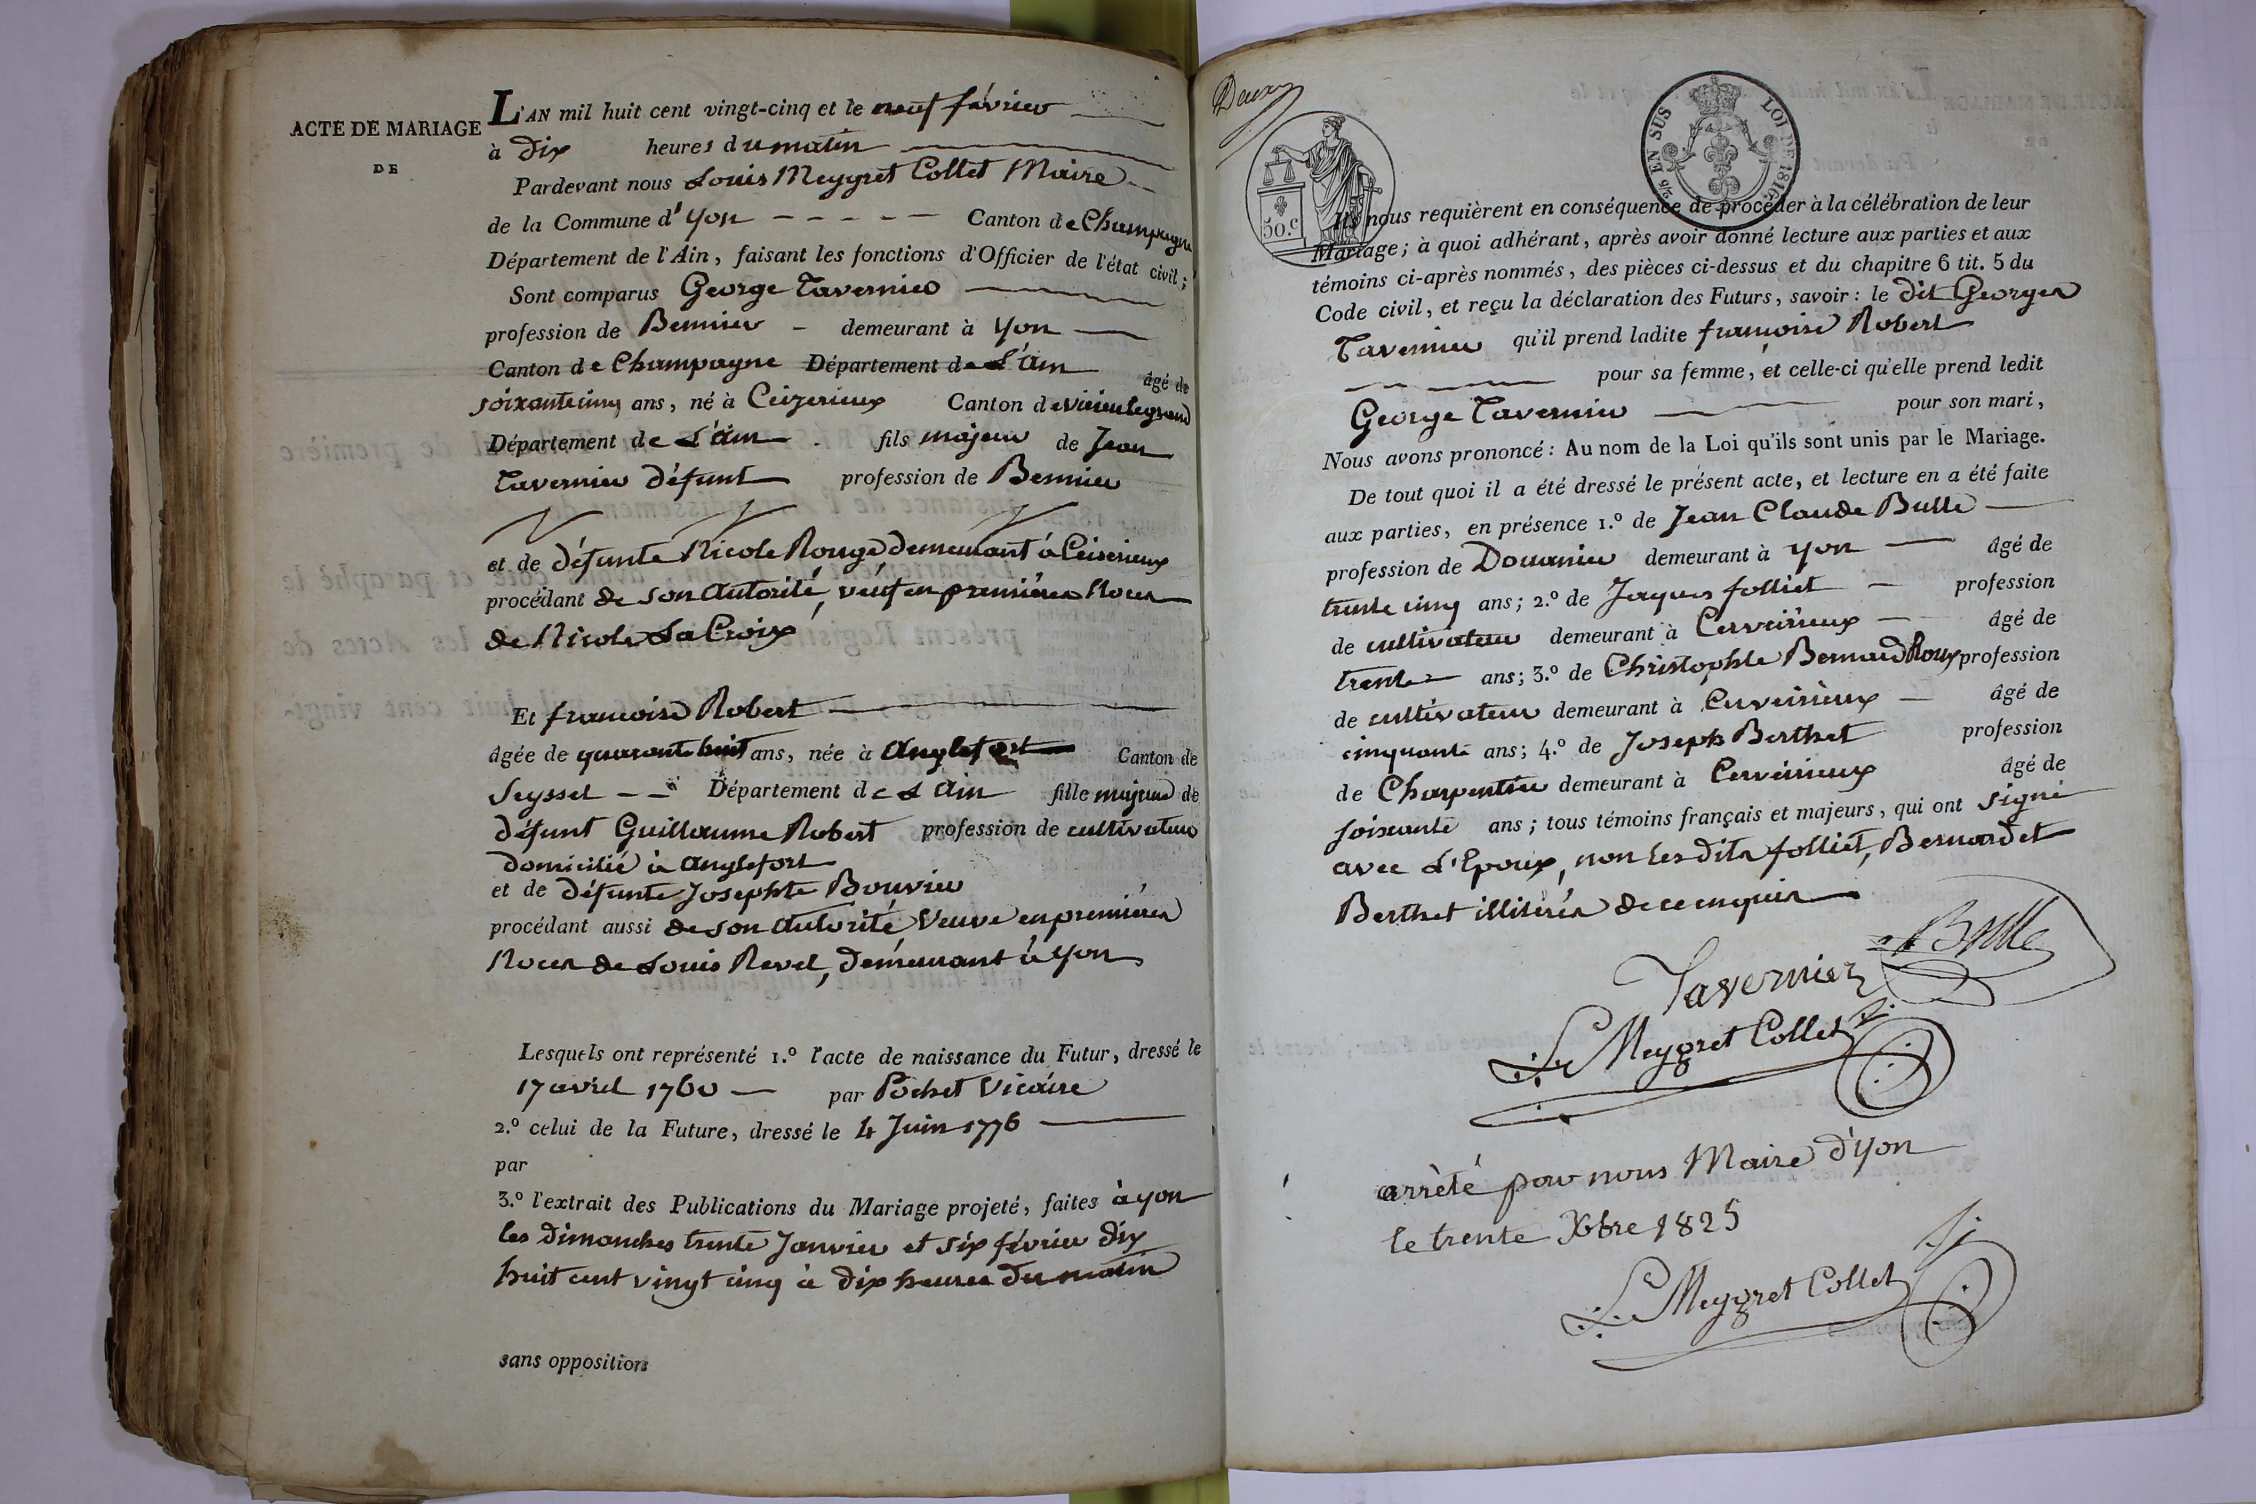 ACTE DE MARIAGE
DE
L'AN mil huit cent vingt-cinq et le neuf février
à Dix heures du matin
Pardevant nous Louis Meygret Collet Maire
de la Commune d'Yon Canton de Champagne
Département de l'Ain, faisant les fonctions d'Officier de l'état civil;
Sont comparus George Tavernier
profession de Bennier demeurant à Yon
Canton de Champagne Département de L'Ain âgé de
soixante cinq ans, né à Ceizerieux Canton de virieu legrand
Département de L'Ain fils majeur de Jean
Tavernier défunt profession de Bennier
et de défunte Nicole Rouge demeurant à Ceiserieux
procédant de son Autorité, veuf en premières Noces
de Nicole La Croix
Et françoise Robert
âgée de quarante huit ans, née à Anglefort Canton de
Seyssel Département de L'Ain fille majeure de
défunt Guillaume Robert profession de cultivateur
domicilié à Anglefort
et de défunte Josephte Bouvier
procédant aussi de son Autorité Veuve en premières
Noces de Louis Revel, demeurant à Yon
Lesquels ont représenté 1.º l'acte de naissance du Futur, dressé le
17 avril 1760 par Pochet Vicaire
2.º celui de la Future, dressé le 4 Juin 1776
par
3.º l'extrait des Publications du Mariage projeté, faites à yon
les Dimanches trente Janvier et six février dix
huit cent vingt cinq à dix heures du matin
sans opposition
Deux
50.c
EN SUS
LOI DE 1816
Ils nous requièrent en conséquence de procéder à la célébration de leur
Mariage; à quoi adhérant, après avoir donné lecture aux parties et aux
témoins ci-après nommés, des pièces ci-dessus et du chapitre 6 tit. 5 du
Code civil, et reçu la déclaration des Futurs, savoir: le dit Georges
Tavernier qu'il prend ladite françoise Robert
pour sa femme, et celle-ci qu'elle prend ledit
George Tavernier pour son mari,
Nous avons prononcé: Au nom de la Loi qu'ils sont unis par le Mariage.
De tout quoi il a été dressé le présent acte, et lecture en a été faite
aux parties, en présence 1.º de Jean Claude Bulle
profession de Douanier demeurant à Yon âgé de
trente cinq ans; 2.º de Jaques folliet profession
de cultivateur demeurant à Cerveirieux âgé de
trente ans; 3.º de Christophle Bernard Roux profession
de cultivateur demeurant à Cerveirieux âgé de
cinquante ans; 4.º de Joseph Berthet profession
de Charpentier demeurant à Cerveirieux âgé de
soixante ans; tous témoins français et majeurs, qui ont signé
avec L'Epoux, non les dits folliet, Bernard et
Berthet illiterés de ce enquis
Bulle
Tavernier
L. Meygret Collet
arrêté par nous Maire d'Yon
le trente Xbre 1825
L. Meygret Collet